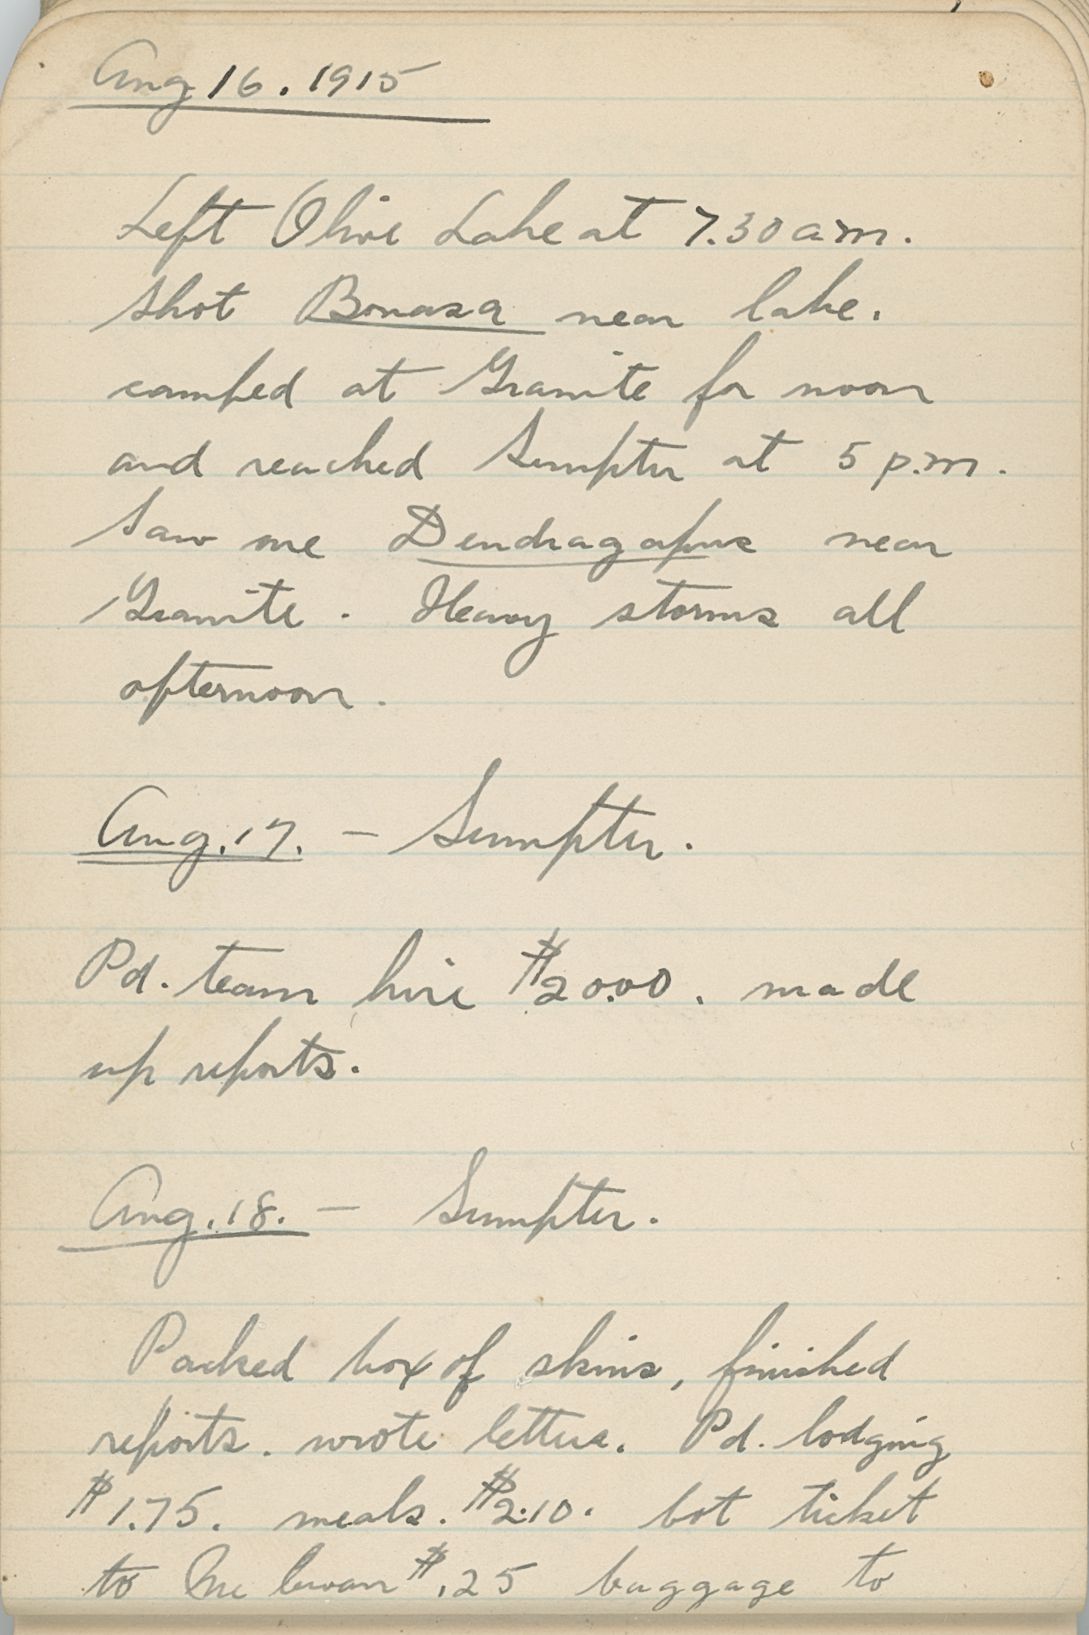 Aug 16. 1915
Left Olive Lake at 7.30 a.m.
Shot Bonasa near lake.
camped at Granite for noon
and reached Sumpter at 5 p.m.
Saw one Dendragapus near
Granite. Heavy storms all
afternoon.
Aug. 17. - Sumpter.
Pd. team hire $20.00. made
up reports.
Aug. 18. - Sumpter.
Packed box of skins, finished
reports. wrote letters. Pd. lodging
$1.75. meals. $2.10. bot ticket
to McEwan $.25 baggage to